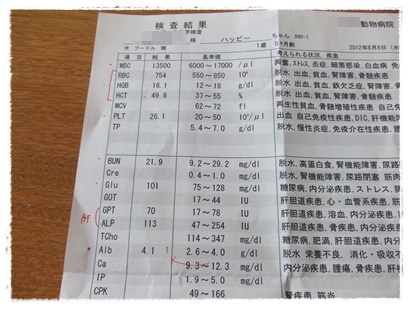 検査結果
動物病院
様 ハッピー ちゃん 890-1
犬 プードル 雄 1歳 0ヶ月齢 2012年8月8日 (水)
項目 結果 基準値 考えられる状況、疾患
WBC 13500 6000～17000 /μl 興奮、ストレス、炎症、細菌感染、白血病
RBC 754 550～850 10⁴ 脱水 出血、貧血、腎障害、骨髄疾患
HGB 16.1 12～18 g/dl 脱水 出血、貧血、鉄欠乏症、腎障害
HCT 49.8 37～55 % 脱水 出血、貧血、腎障害、骨髄疾患
MCV 62～72 fl 再生性貧血、骨髄増殖性疾患
PLT 26.1 20～50 10⁴/μl 出血 自己免疫性疾患、DIC、肝機能
TP 5.4～7.0 g/dl 脱水、慢性炎症、免疫介在性疾患
BUN 21.9 9.2～29.2 mg/dl 脱水、高蛋白食、腎機能障害、尿路
Cre 0.4～1.0 mg/dl 脱水、腎機能障害、尿路閉塞 筋肉
Glu 101 75～128 mg/dl 糖尿病、内分泌疾患、ストレス、
GOT 17～44 IU 肝胆道疾患、心・血管系疾患、筋
GPT 70 17～78 IU 肝胆道疾患、溶血、内分泌疾患、
ALP 113 47～254 IU 肝胆道疾患、骨疾患、内分泌疾患、
TCho 114～347 mg/dl 糖尿病、肥満、肝胆道疾患、内分泌
Alb 4.1 2.6～4.0 g/dl 脱水 栄養不良、消化・吸収不
Ca 9.3～12.3 mg/dl 内分泌疾患、腫瘍、骨疾患、肝
IP 1.9～5.0 mg/dl 内分泌疾患、骨疾患、
CPK 49～166 腎疾患、筋炎
肝